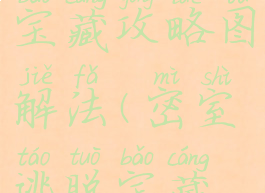 宝藏攻略图
jiě fǎ mì shì
解法(密室
táo tuō bǎo cáng
逃脱宝藏